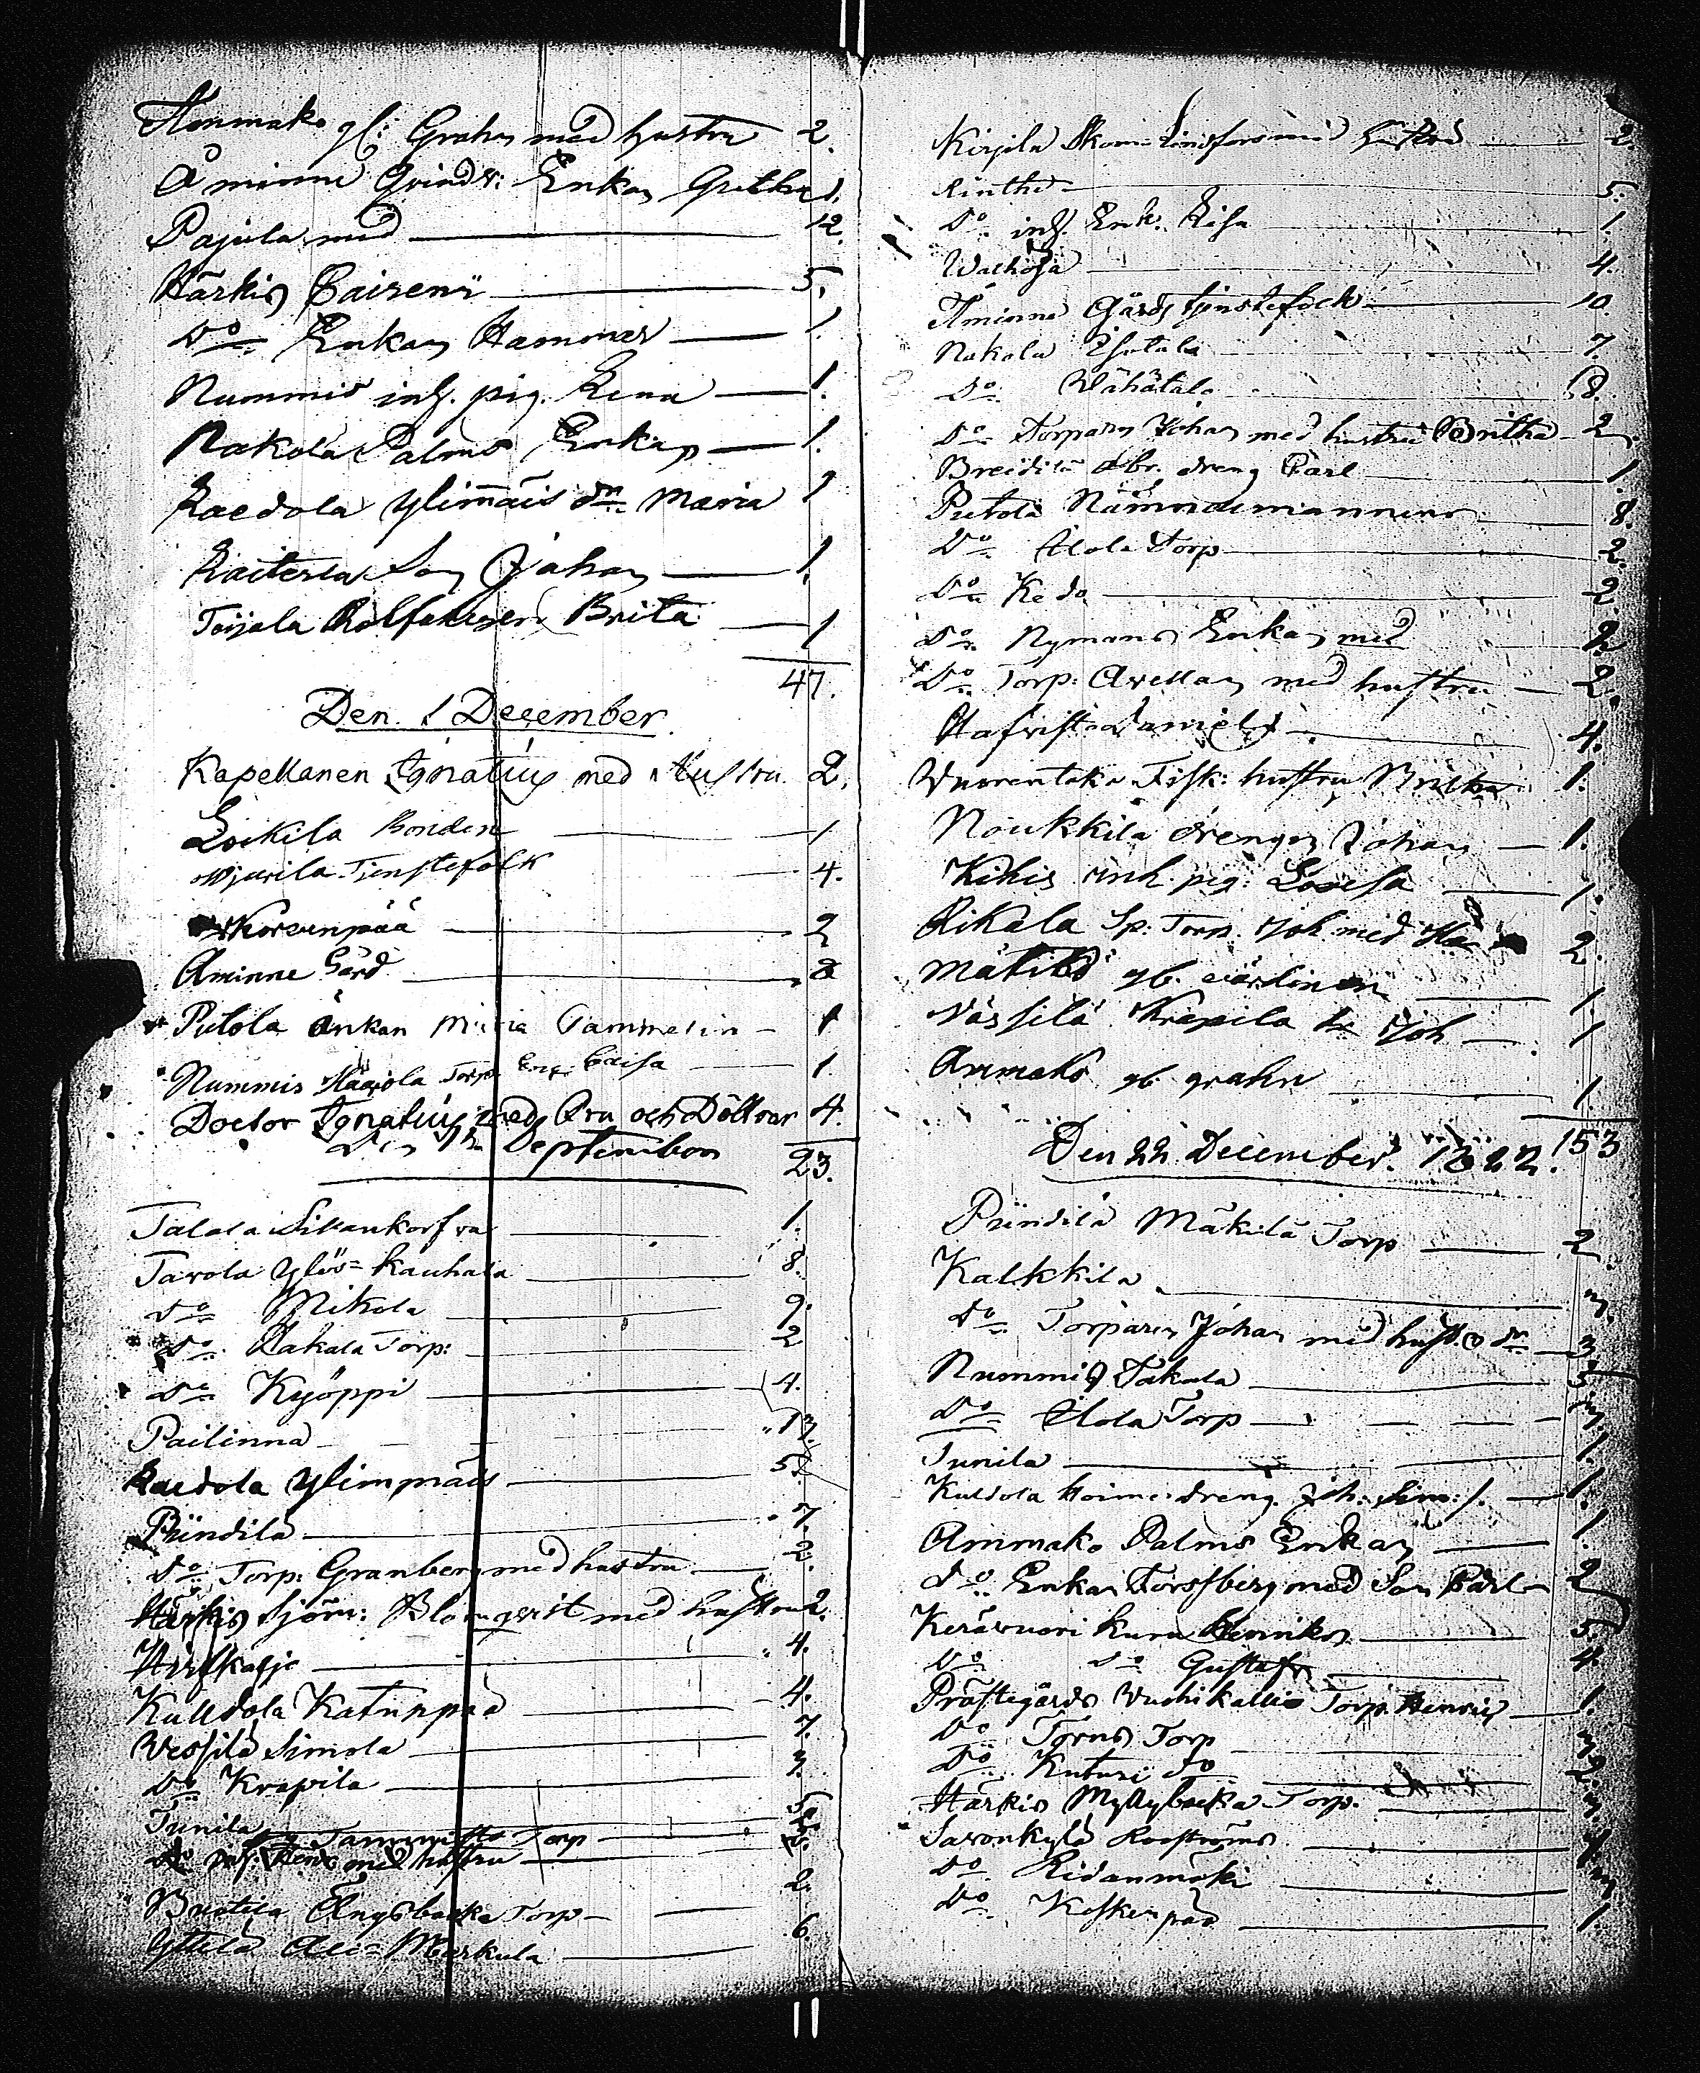 gl: Grahn med hustru 2.
Åminne Grinds: Enkan Gretha 1.
Pajula med 12.
Härkis Cairenii 5.
Do Enkan Hammar 1.
Nummis inh. pig. Lena 1.
Nakola Palms Enkan 1.
Kaedola Ylimäis dr. Maria 1
Raiterla Son Johan 1.
Toijala Brita 1
47.
Den 1 December.
Kapellanen Ignatius med Hustru 2.
Bonden 1
Tjenstefolk 4.
Korvenpää 2
Aminne Gård 2
Putola änkan Maria Tammelin 1
Nummis Haajola Torp. Enk. Caisa 1.
Doctor Ignatius med Fru och Döttrar 4.
Den September
23.
Talola Sillankorfva 1.
Tavola Ylös-Kauhala 8.
Do Mikola 9.
Do Hakala Torp: 2
Do Kyöppi 4.
Pailinna 13.
Kaedola Ylimmäis 5.
Pündilä 7.
Do Torp: Granberg med hustru 2.
Härkis Sjöm: Blomqvist med hustru 2.
4.
Kulldola Katinpää 4.
Vessilä Simola 7.
Do Krapila 3.
Tunila Tammisto Torp 5.
Do med hustru 2.
Ängsbacka Torp 2.
Yttelä Ali-Markula 6.
Kirjola Skom. Lindfors med hustru 2
Rinthe 5.
Do inh. Enk. Lisa 1.
4.
Åminne Gårds tjenstefolck 10.
Nakola Isotalo 7.
Do Vähätalo 18.
Do Torparen Johan med hustru Britha 2.
dreng Carl 1
Putola Nämndemannens 8.
Do Alola Torp 2.
Do Ke do 2.
Do Nymans Enka med 2.
Do Torp: Avellan med hustru 2.
4.
Vuorentaka Fisk: hustru Britha 1.
Noukkila drengen Johan 1.
Kihis inh. pig: Lovisa 1.
Rikala Sp: Torp. Joh med 2.
gb. 1.
Vässilä Krapila Joh 1
Ammako gb. grahn 1.
153
Den 22 December. 1822.
Pündilä Mäkilä Torp 2.
Kalkkila 3.
Do Torparen Johan med hust. o dr 3
Nummis Takala 5
Do Alola Torp 3.
Tunila 1.
Kulldola dreng. Joh. Sim: s. 1.
Ammako Palms Enkan 1.
Do Enkan Forssberg med Son Carl 2
Kerävuori Kuru Henriks 5.
Do Do Gustafs 4
Prästegårds Vuohikallio Torp. Henric 1.
Do Torns Torp 3
Do Kuturi do 2.
Härkis Myllybacka Torp. 3.
Savonkylä 1.
Do Ridanmäki 3
Do Koskenpää 1.